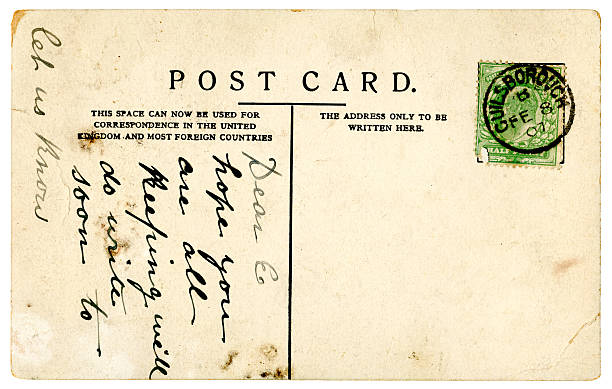 POST CARD.
THIS SPACE CAN NOW BE USED FOR
CORRESPONDENCE IN THE UNITED
KINGDOM AND MOST FOREIGN COUNTRIES
THE ADDRESS ONLY TO BE
WRITTEN HERE.
GUILSBOROUGH
B
FE 8
07
HALFPENNY
Dear E
hope you
are all
Keeping well
do write
soon to
let us know